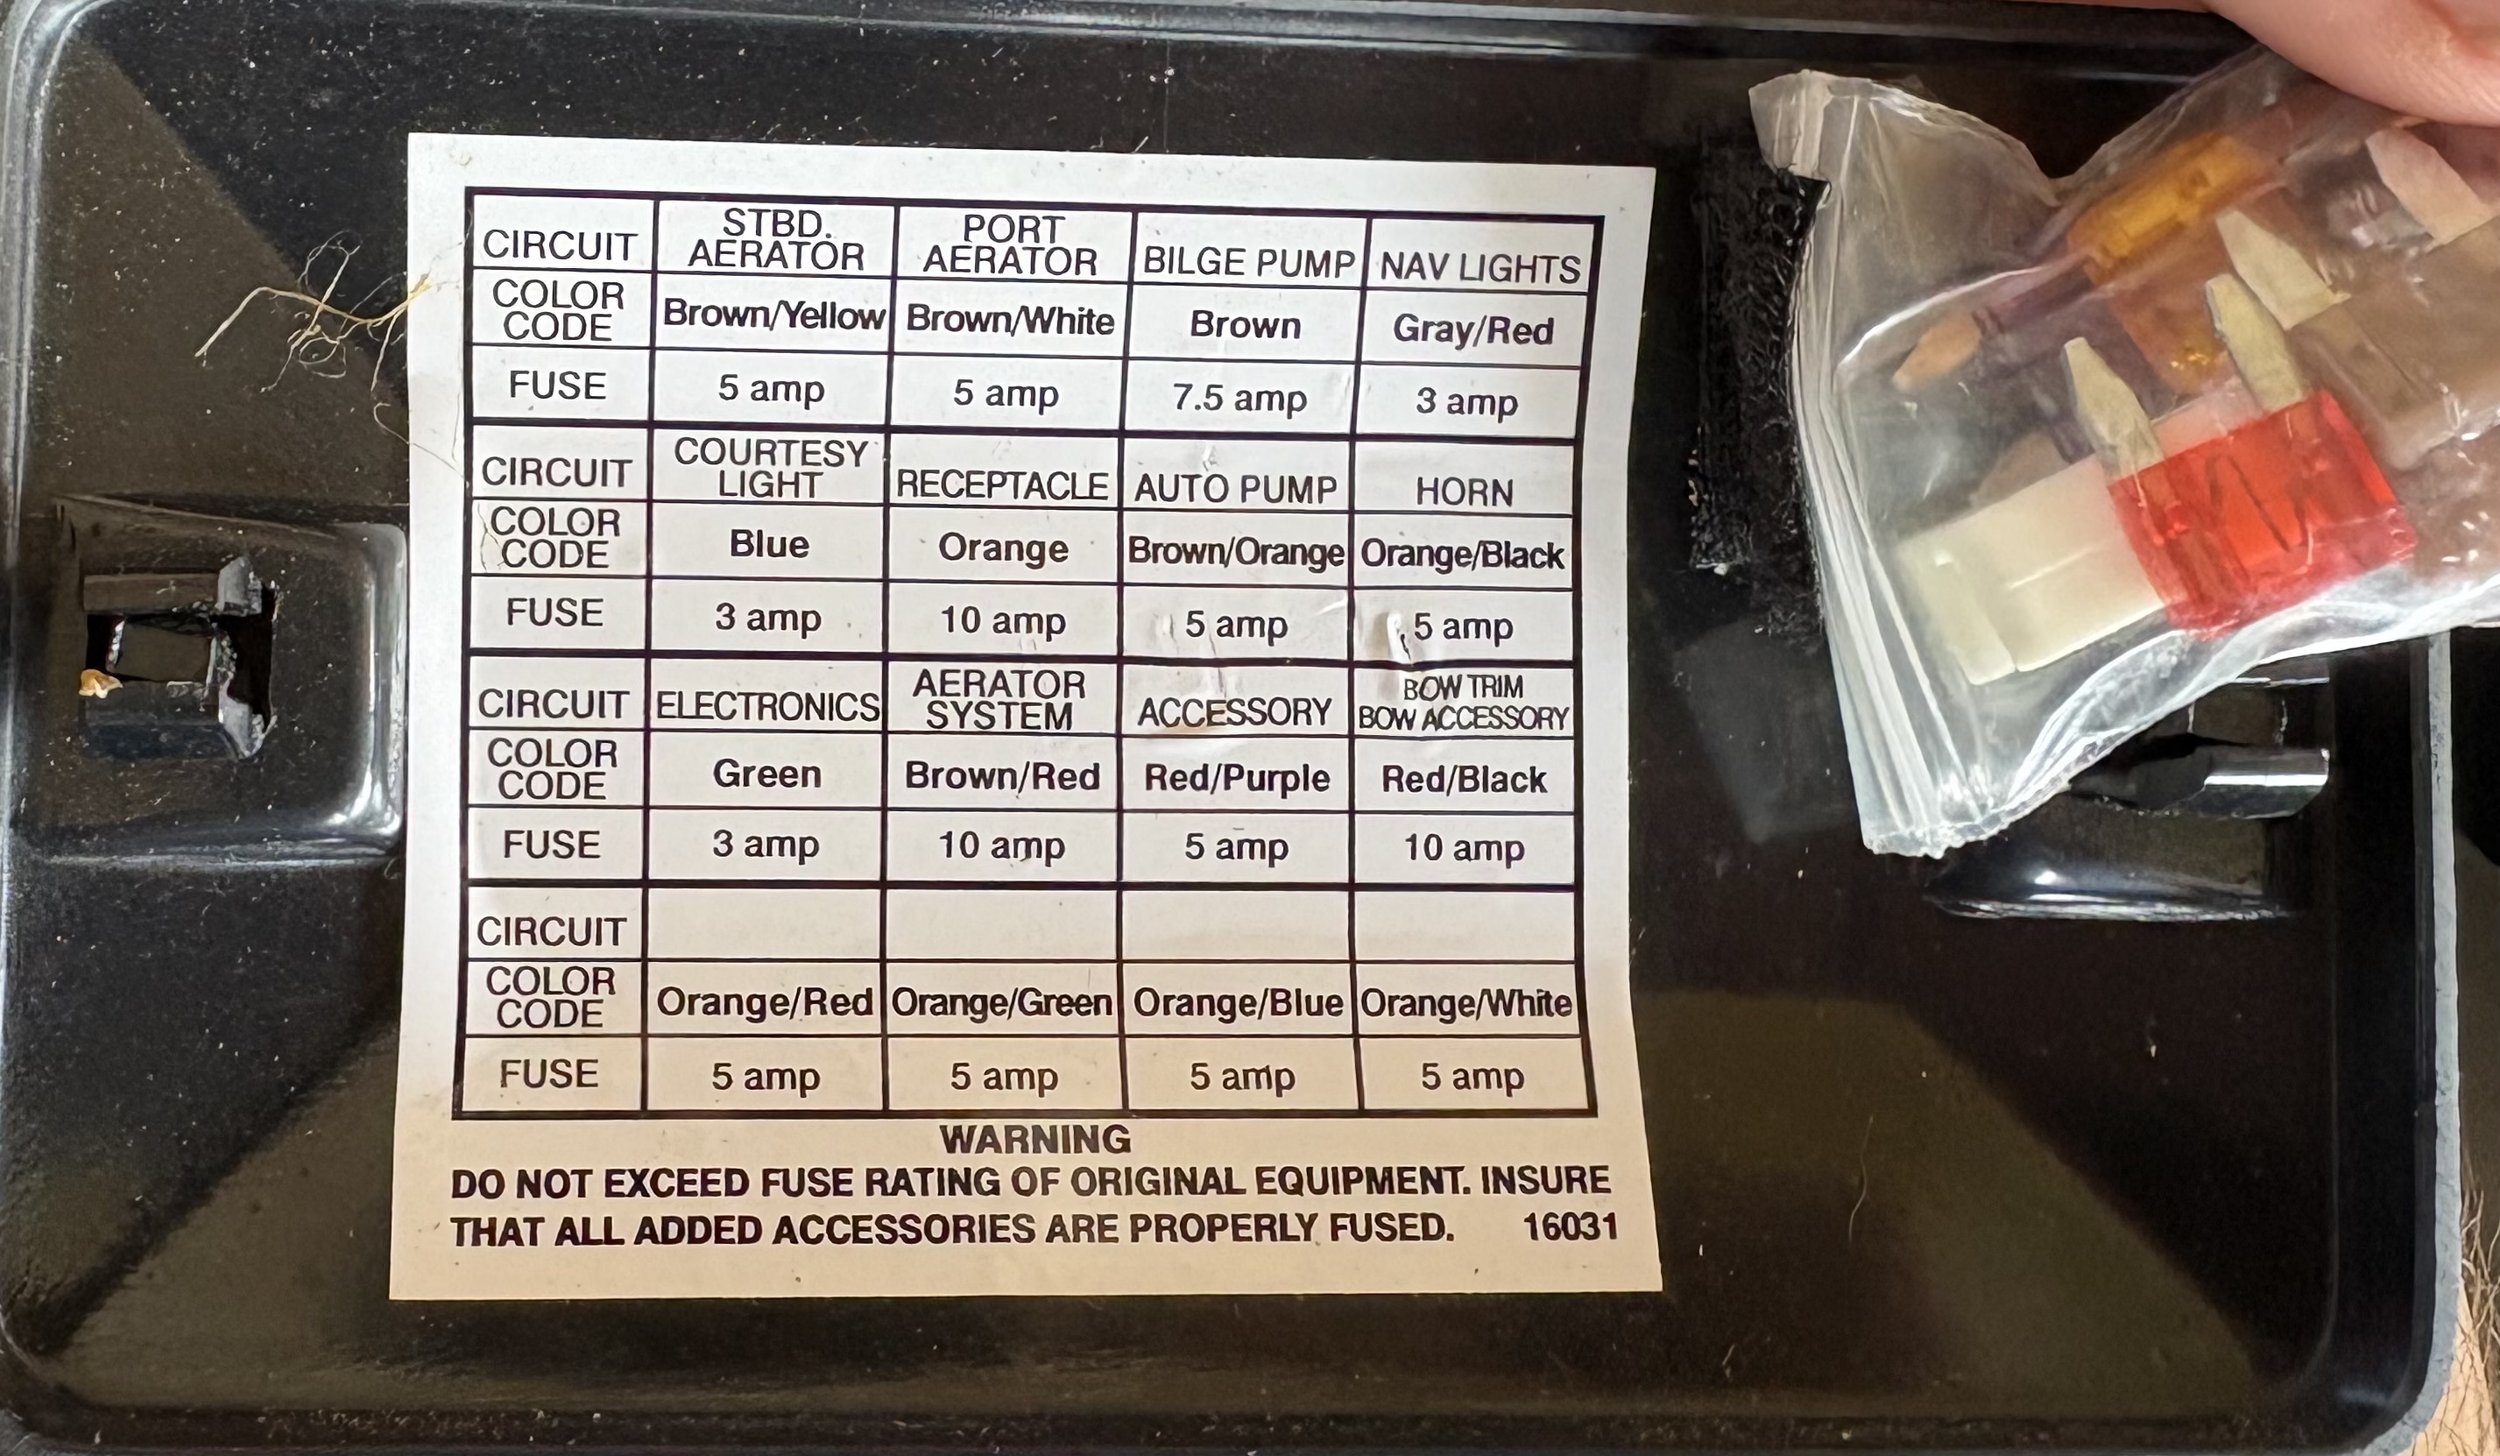 CIRCUIT STBD. AERATOR PORT AERATOR BILGE PUMP NAV LIGHTS
COLOR CODE Brown/Yellow Brown/White Brown Gray/Red
FUSE 5 amp 5 amp 7.5 amp 3 amp
CIRCUIT COURTESY LIGHT RECEPTACLE AUTO PUMP HORN
COLOR CODE Blue Orange Brown/Orange Orange/Black
FUSE 3 amp 10 amp 5 amp 5 amp
CIRCUIT ELECTRONICS AERATOR SYSTEM ACCESSORY BOW TRIM BOW ACCESSORY
COLOR CODE Green Brown/Red Red/Purple Red/Black
FUSE 3 amp 10 amp 5 amp 10 amp
CIRCUIT
COLOR CODE Orange/Red Orange/Green Orange/Blue Orange/White
FUSE 5 amp 5 amp 5 amp 5 amp
WARNING
DO NOT EXCEED FUSE RATING OF ORIGINAL EQUIPMENT. INSURE
THAT ALL ADDED ACCESSORIES ARE PROPERLY FUSED. 16031